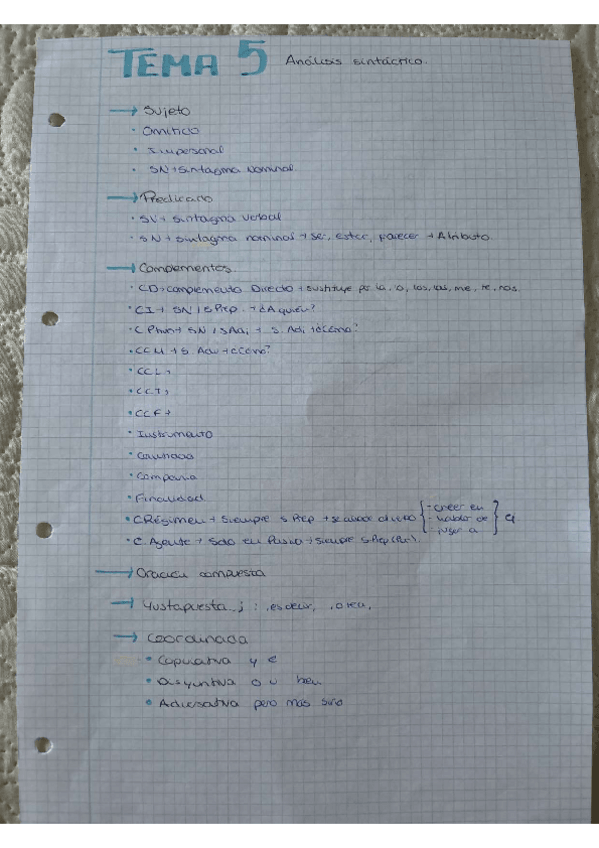 TEMA 5 Análisis sintáctico.
→ Sujeto
• Omitido
• Impersonal
• SN → Sintagma Nominal.
→ Predicado
• SV → Sintagma verbal
• SN → Sintagma nominal → Ser, estar, parecer → Atributo.
→ Complementos.
• CD → Complemento Directo → sustituye por la, lo, los, las, me, te, nos.
• CI → SN / SPrep. → ¿A quién?
• C → SN / SAdj → S. Adj ¿Cómo?
• CCM → S. Adv → ¿Cómo?
• CCL →
• CCT →
• CCF →
• Instrumento
• Cantidad
• Compañía
• Finalidad
• C Régimen → Siempre S Prep → { - creer en
- hablar de
- jugar a } 
• C. Agente → Solo en Pasiva → Siempre S Prep (Por).
→ Oración compuesta
→ Yustapuesta , ; : , es decir, , o sea,
→ Coordinada
• Copulativa y e
• Disyuntiva o u bien
• Adversativa pero mas sino